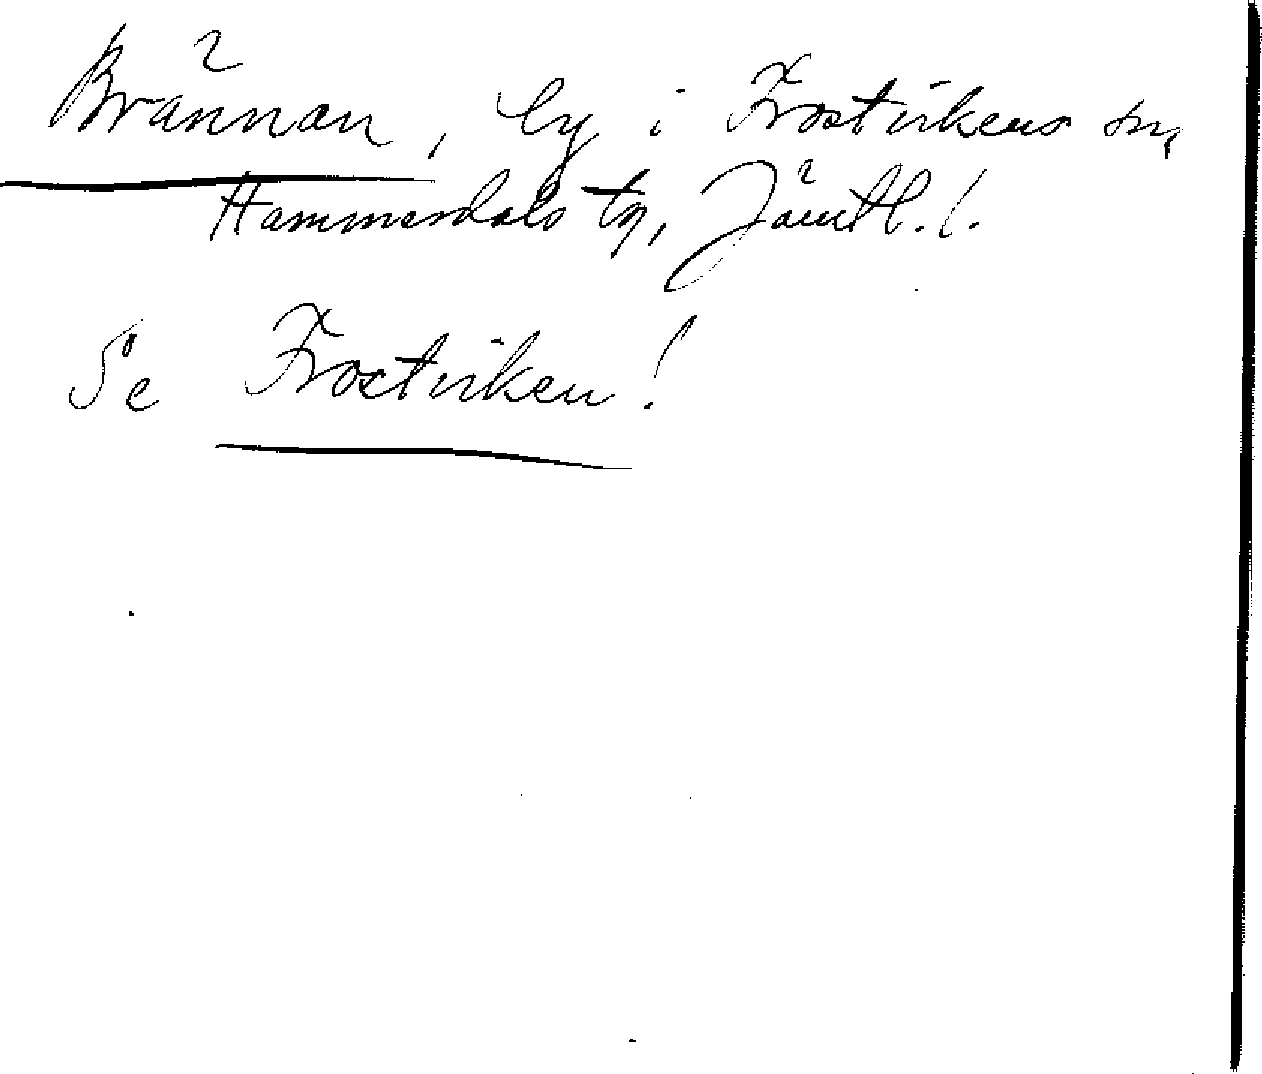 Brännan, by i Frostvikens sn,
Hammerdals tg, Jämtl. l.
Se Frostviken!